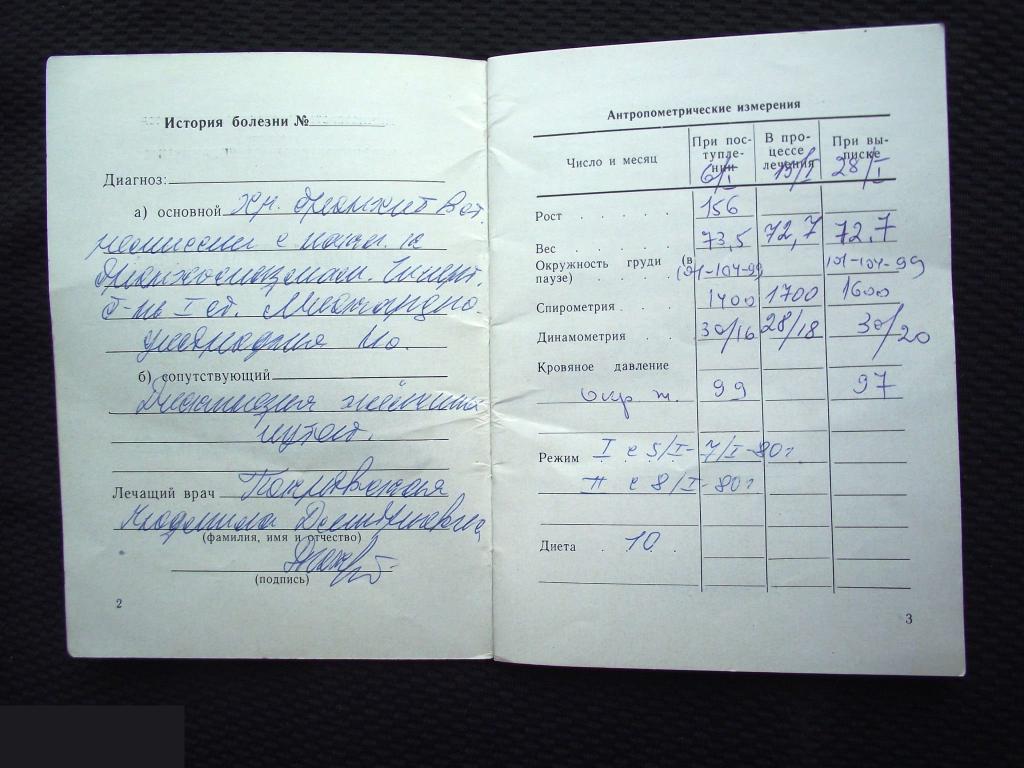 История болезни №
Диагноз:
а) основной Хр. бронхит в ст.
ремиссии с накл. к
бронхоспазмам. Гиперт.
б-нь I ст. Миокардио-
Н0.
б) сопутствующий
Дискинезия желчных
путей.
Лечащий врач Покровская
Людмила
(фамилия, имя и отчество)
(подпись)
2
Антропометрические измерения
Число и месяц При поступлении В процессе лечения При выписке
6/I 15/I 28/I
Рост 156
Вес 73,5 72,7 72,7
Окружность груди (в паузе) 101-104-99 101-104-99
Спирометрия 1400 1700 1600
Динамометрия 30/16 28/18 30/20
Кровяное давление
окр ж. 99 97
Режим I с 5/I-7/I-80г
II с 8/I-80г
Диета 10
3